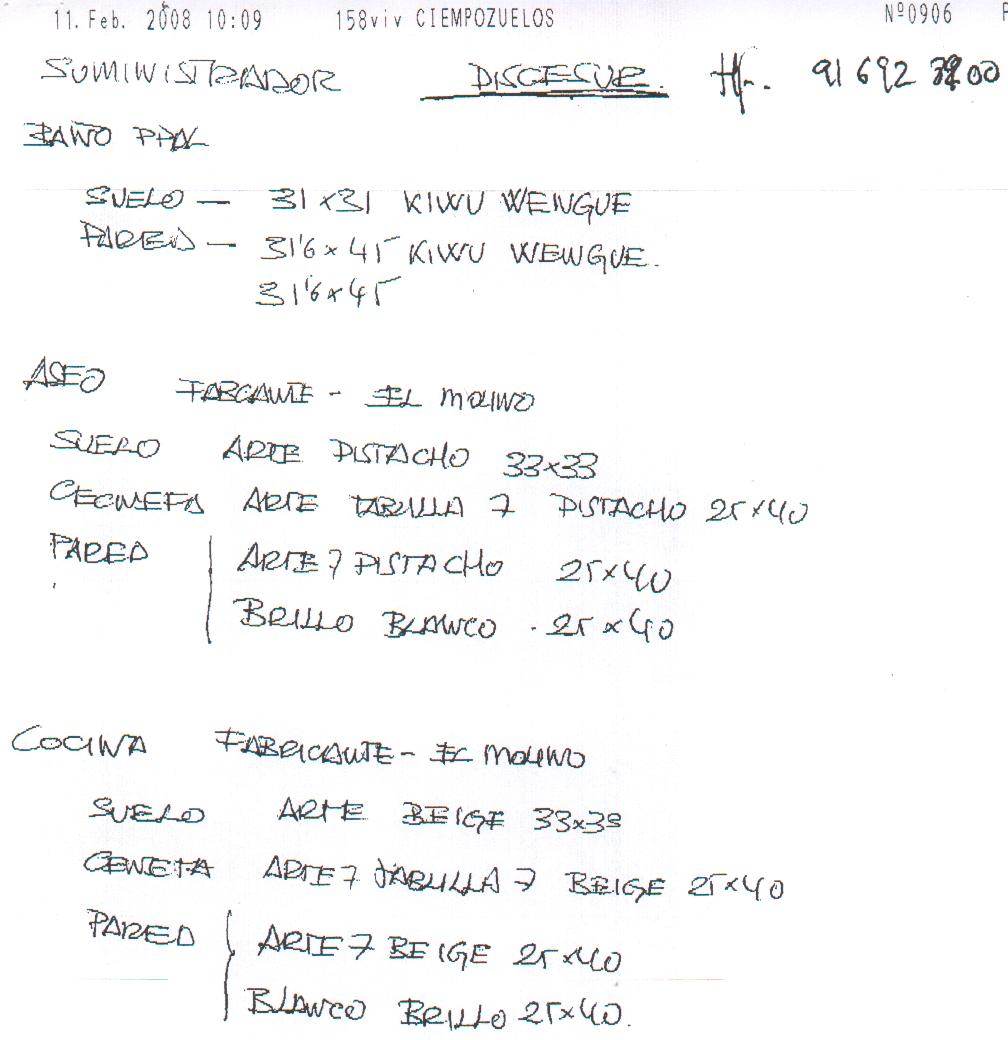 11. Feb. 2008 10:09 158viv CIEMPOZUELOS Nº0906 P
SUMINISTRADOR DISCESUR. Tfn. 91 692 00
BAÑO PPAL
SUELO — 31x31 KIWU WENGUE
PARED — 31'6 x 45 KIWU WENGUE.
31'6 x 45
ASEO FABCANTE - EL MOLINO
SUELO ARTE PISTACHO 33x33
CECNEFA ARTE TABLILLA 7 PISTACHO 25x40
PARED ARTE 7 PISTACHO 25x40
BRILLO BLANCO . 25x40
COCINA FABRICANTE - EL MOLINO
SUELO ARTE BEIGE 33x33
CENEFA ARTE 7 TABLILLA 7 BEIGE 25x40
PARED ARTE 7 BEIGE 25x40
BLANCO BRILLO 25x40.